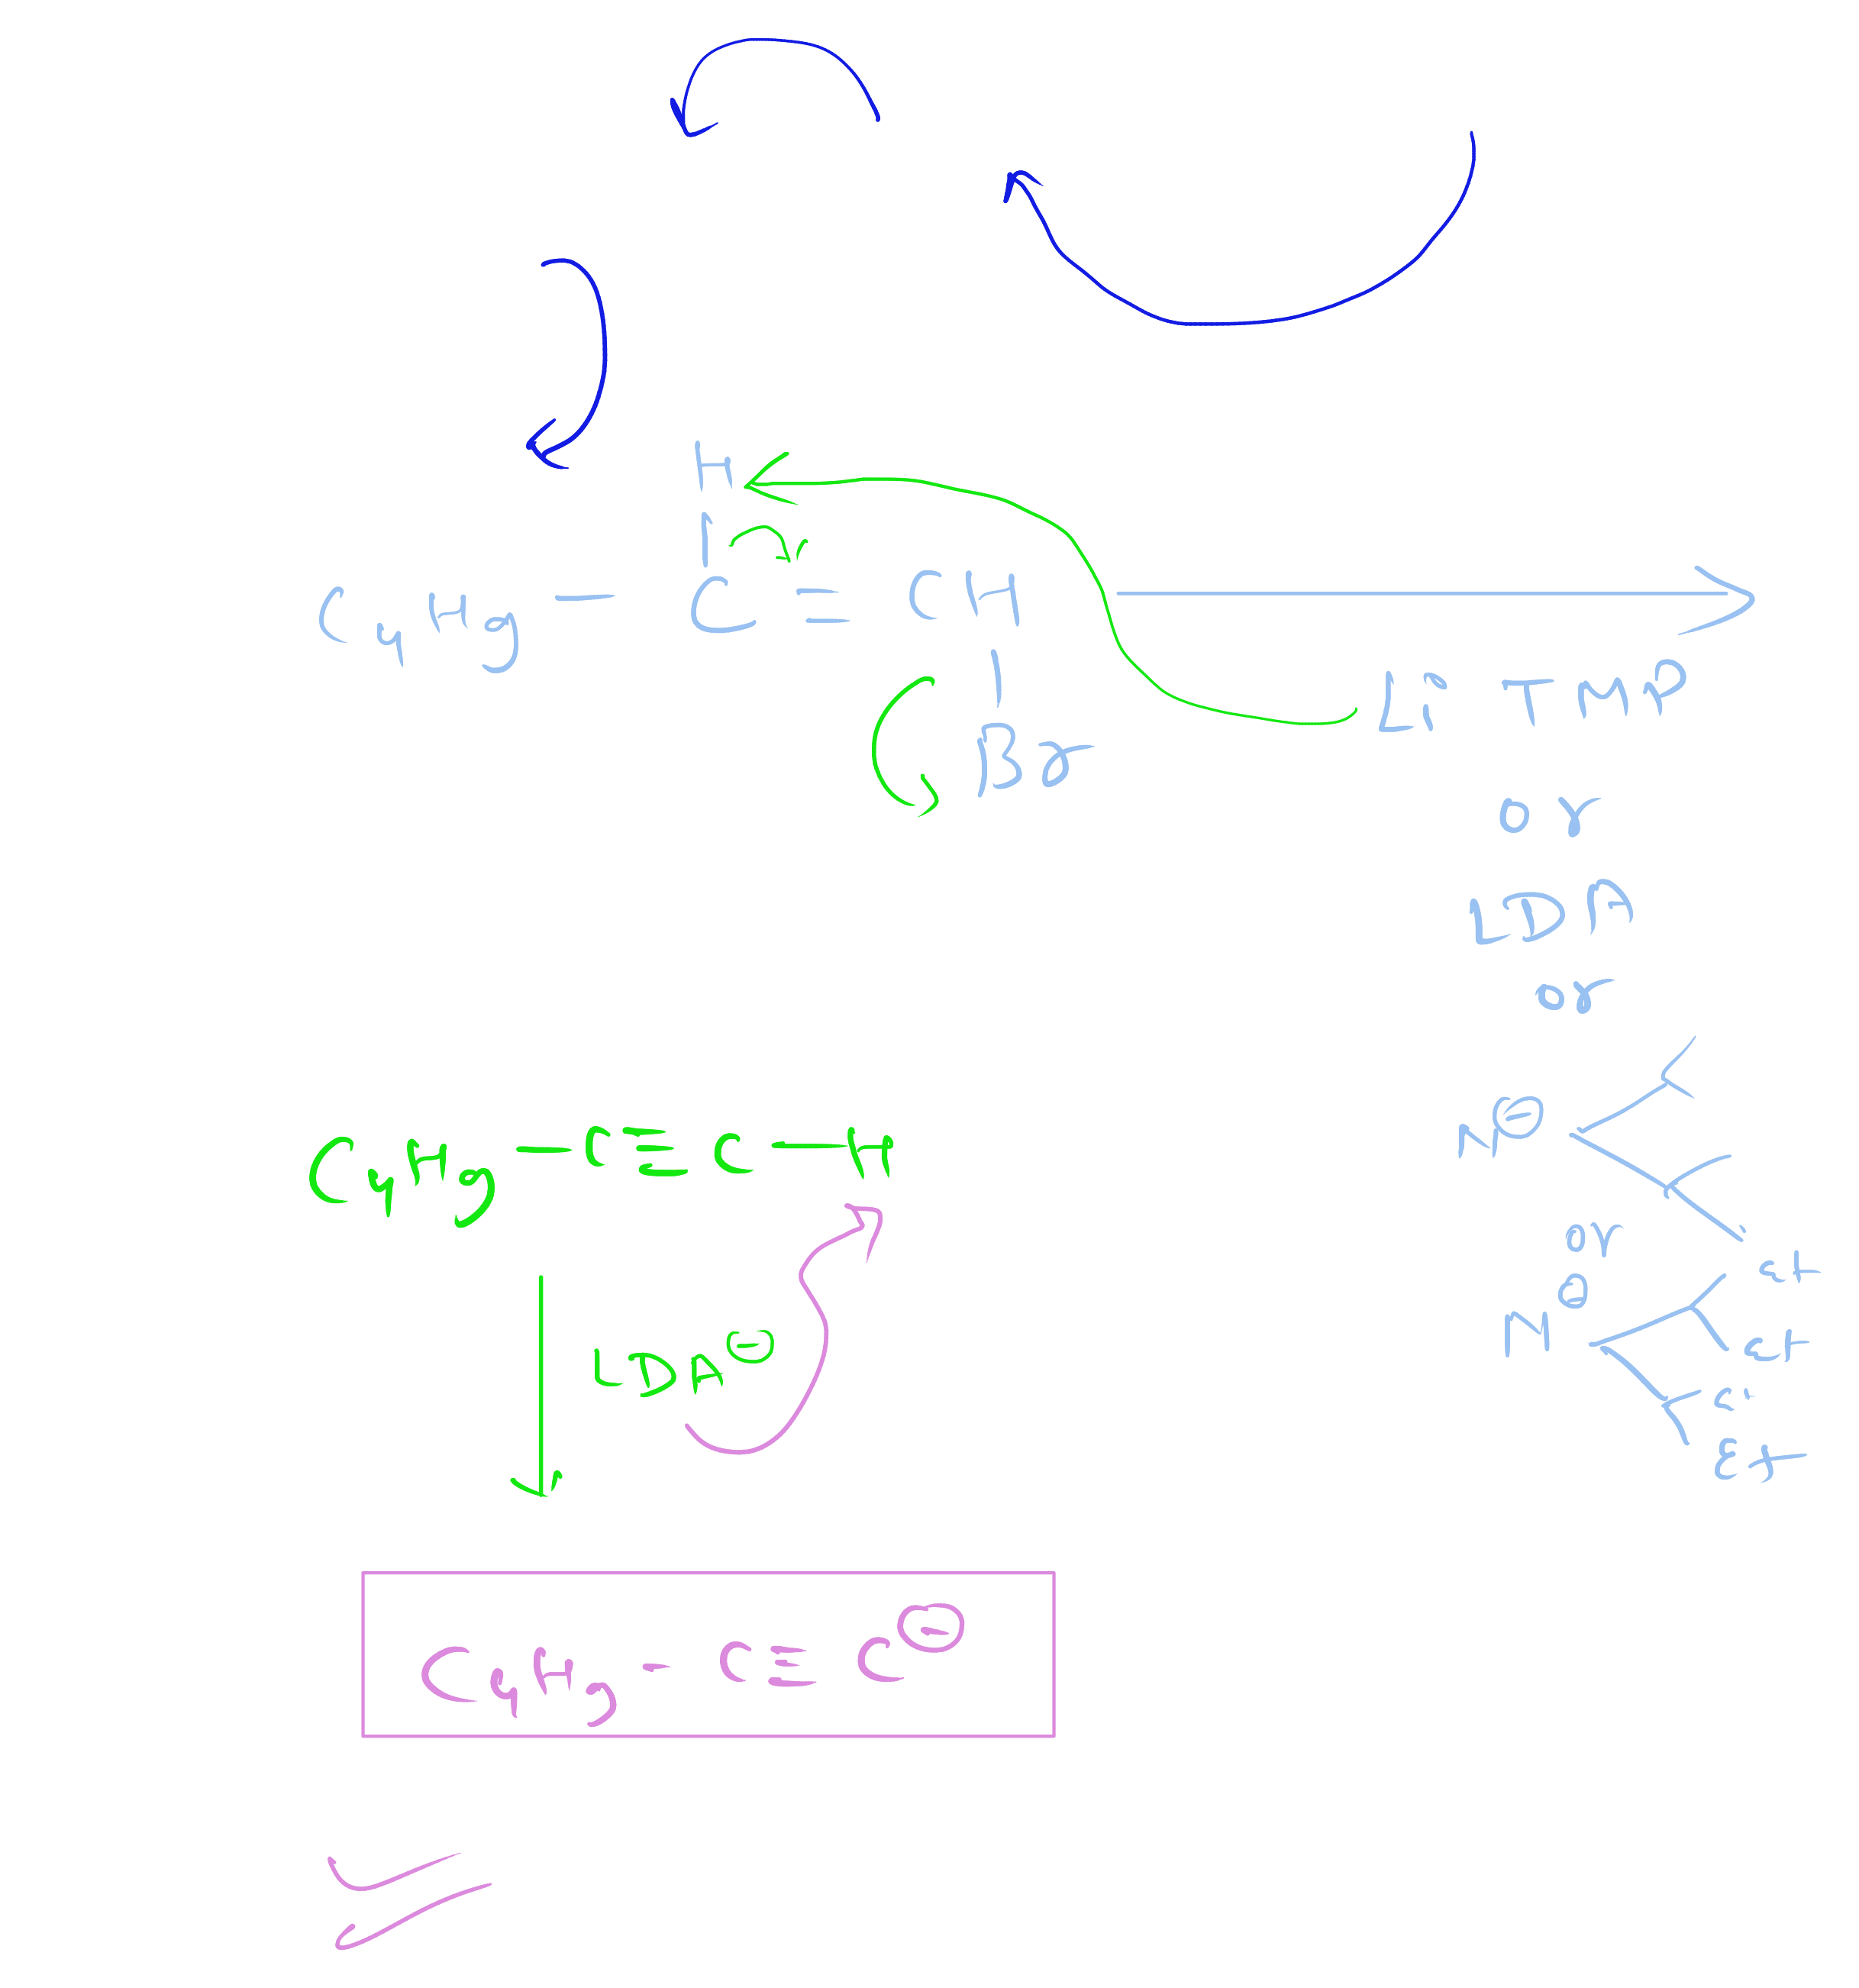 H
C4H9 - C = CH
Br
Li TMP
or
LDA
or
N⊖
or
N⊖
et
et
et
Et
C4H9 - C ≡ C - H
LDA⊖
C4H9 - C ≡ C⊖